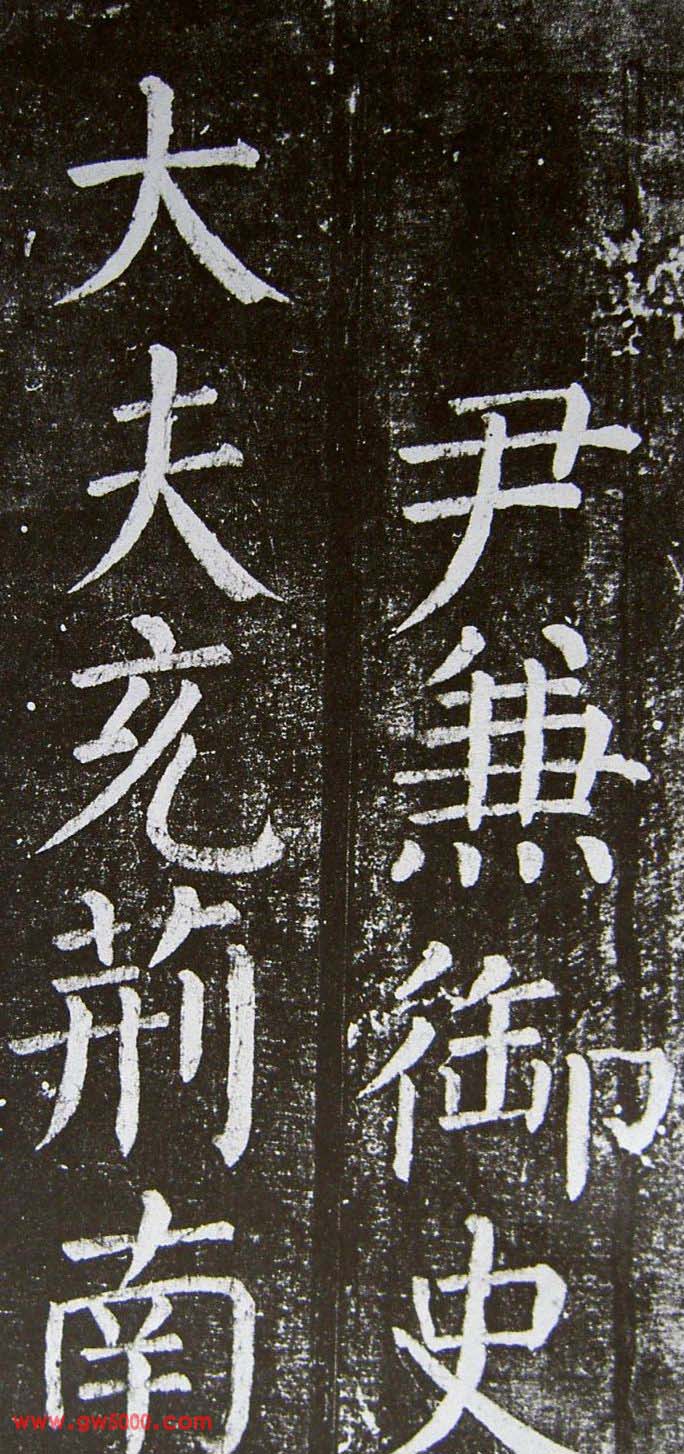 尹兼御史
大夫充荆南
www.gw5000.com